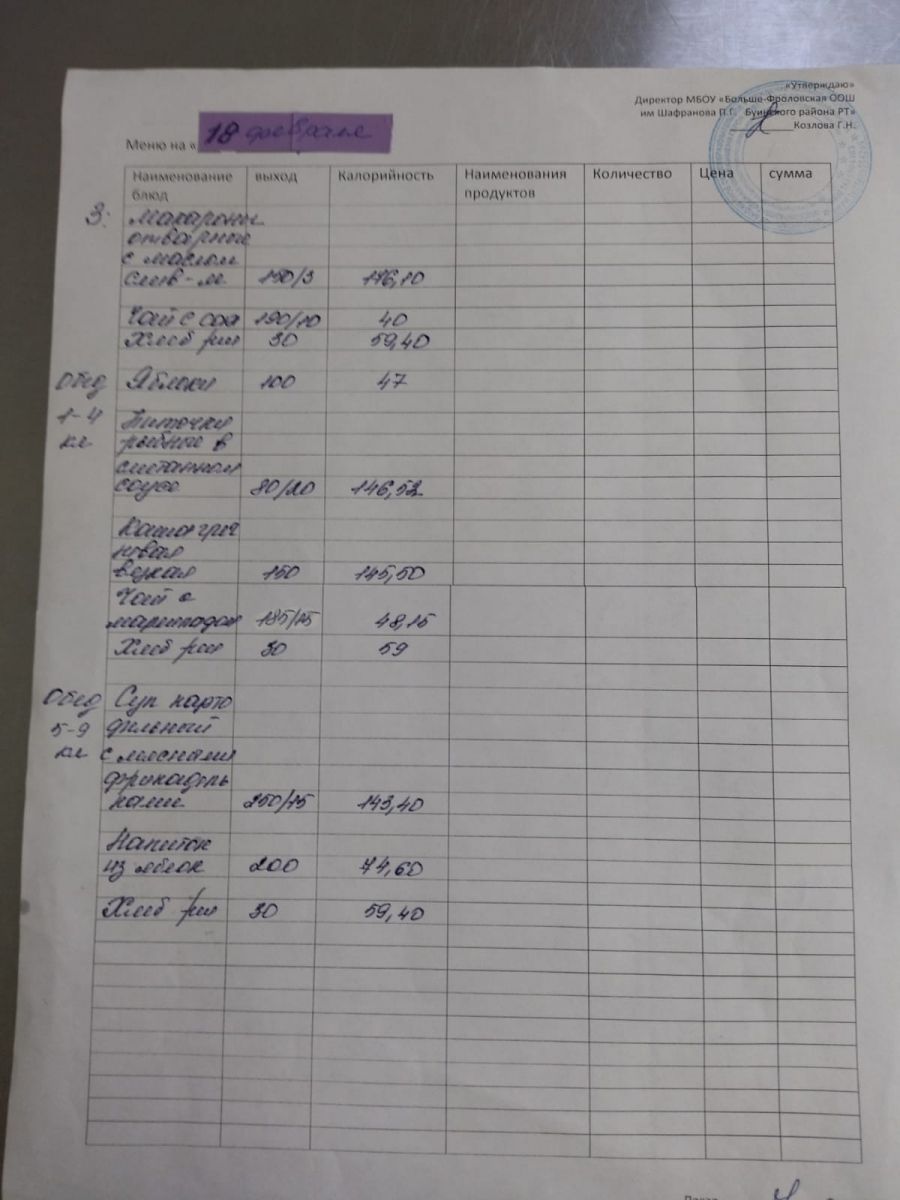 «Утверждаю»
Директор МБОУ «Больше-Фроловская ООШ
им Шафранова П.Г. Буинского района РТ»
Козлова Г.Н.
Меню на « 18 февраля
Наименование блюд выход Калорийность Наименования продуктов Количество Цена сумма
З: Макароны
отварные
с маслом
слив-м. 150/3 176,10
Чай с сах 190/10 40
Хлеб рж 30 59,40
Обед Яблоки 100 47
1-4 Биточки
кл рыбные в
сметанном
соусе 80/20 146,52
Каша греч
невая
вязкая 150 145,50
Чай с
мармеладом 185/15 48,15
Хлеб рж 30 59
Обед Суп карто
5-9 фельный
кл с мясными
фрикадель
ками 250/15 143,40
Напиток
из яблок 200 74,60
Хлеб рж 30 59,40